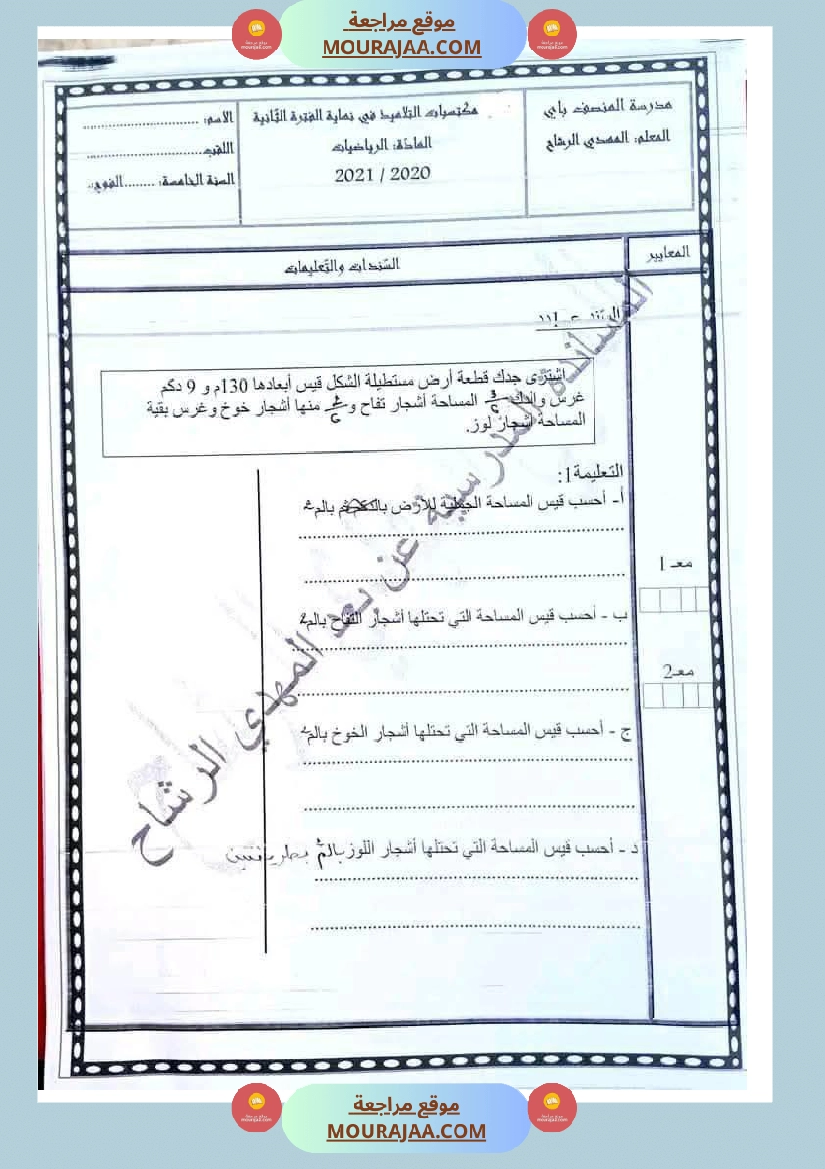 موقع مراجعة
MOURAJAA.COM
مدرسة المنصف باي
المعلم: المهدي الرشاح
مكتسبات التلاميذ في نهاية الفترة الثانية
المادة: الرياضيات
2021 / 2020
الاسم: ..............................
اللقب..............................
السنة الخامسة: ........الفوج:..
المعايير
السندات والتعليمات
السند عـ1ـدد
اشترى جدك قطعة أرض مستطيلة الشكل قيس أبعادها 130م و 9 دكم
غرس والدك المساحة أشجار تفاح و منها أشجار خوخ وغرس بقية
المساحة أشجار لوز.
التعليمة1:
أ- أحسب قيس المساحة الجملية للأرض بالم²
معـ 1
ب - أحسب قيس المساحة التي تحتلها أشجار التفاح بالم²
معـ2
ج - أحسب قيس المساحة التي تحتلها أشجار الخوخ بالم²
د - أحسب قيس المساحة التي تحتلها أشجار اللوز بالم² بطريقتين
المساندة المدرسية عن بعد المهدي الرشاح
موقع مراجعة
MOURAJAA.COM